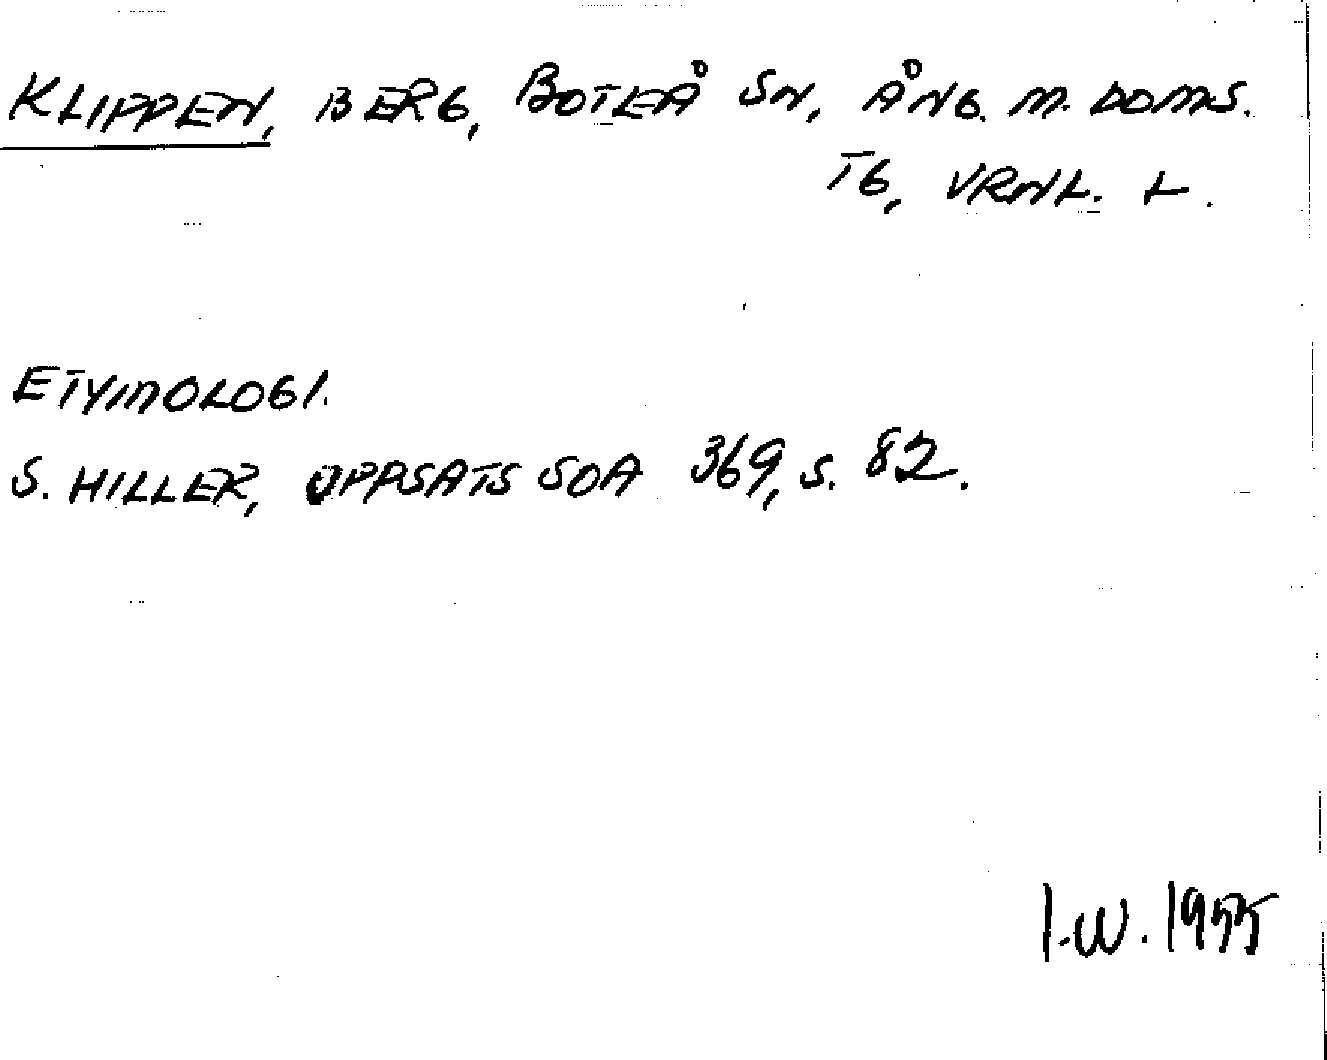 KLIPPEN, BERG, BOTEÅ SN, ÅNG. M. DOMS.
TG, VRNL. L.
ETYMOLOGI.
S. HILLER, UPPSATS SOA 369, S. 82.
I.W. 1955